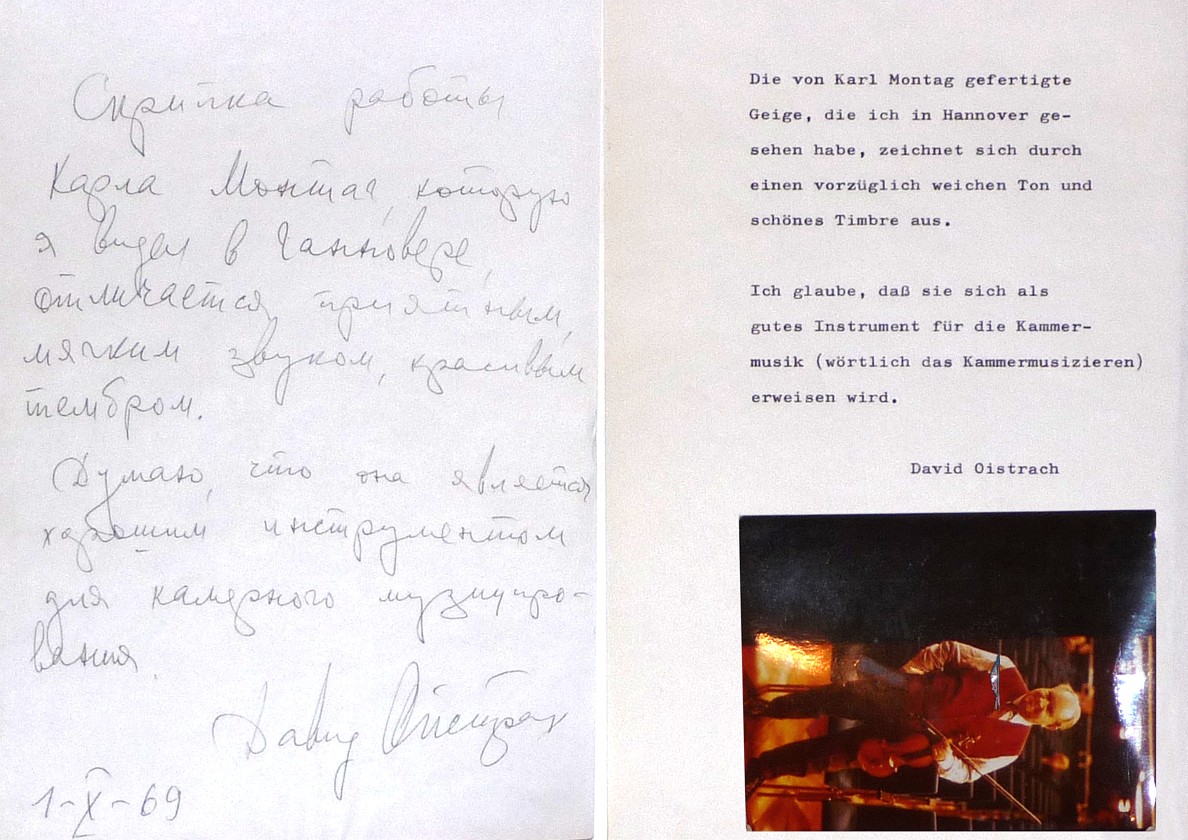 Скрипка работы
Карла Монтаг, которую
я видел в Ганновере,
отличается приятным,
мягким звуком, красивым
тембром.
Думаю, что она является
хорошим инструментом
для камерного музициро-
вания.
Давид Ойстрах
1-X-69
Die von Karl Montag gefertigte
Geige, die ich in Hannover ge-
sehen habe, zeichnet sich durch
einen vorzüglich weichen Ton und
schönes Timbre aus.
Ich glaube, daß sie sich als
gutes Instrument für die Kammer-
musik (wörtlich das Kammermusizieren)
erweisen wird.
David Oistrach